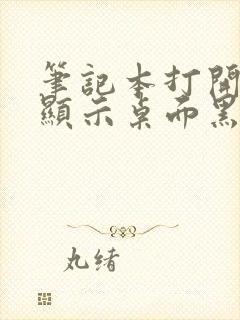 筆記本打開
顯示桌面黑
丸緒